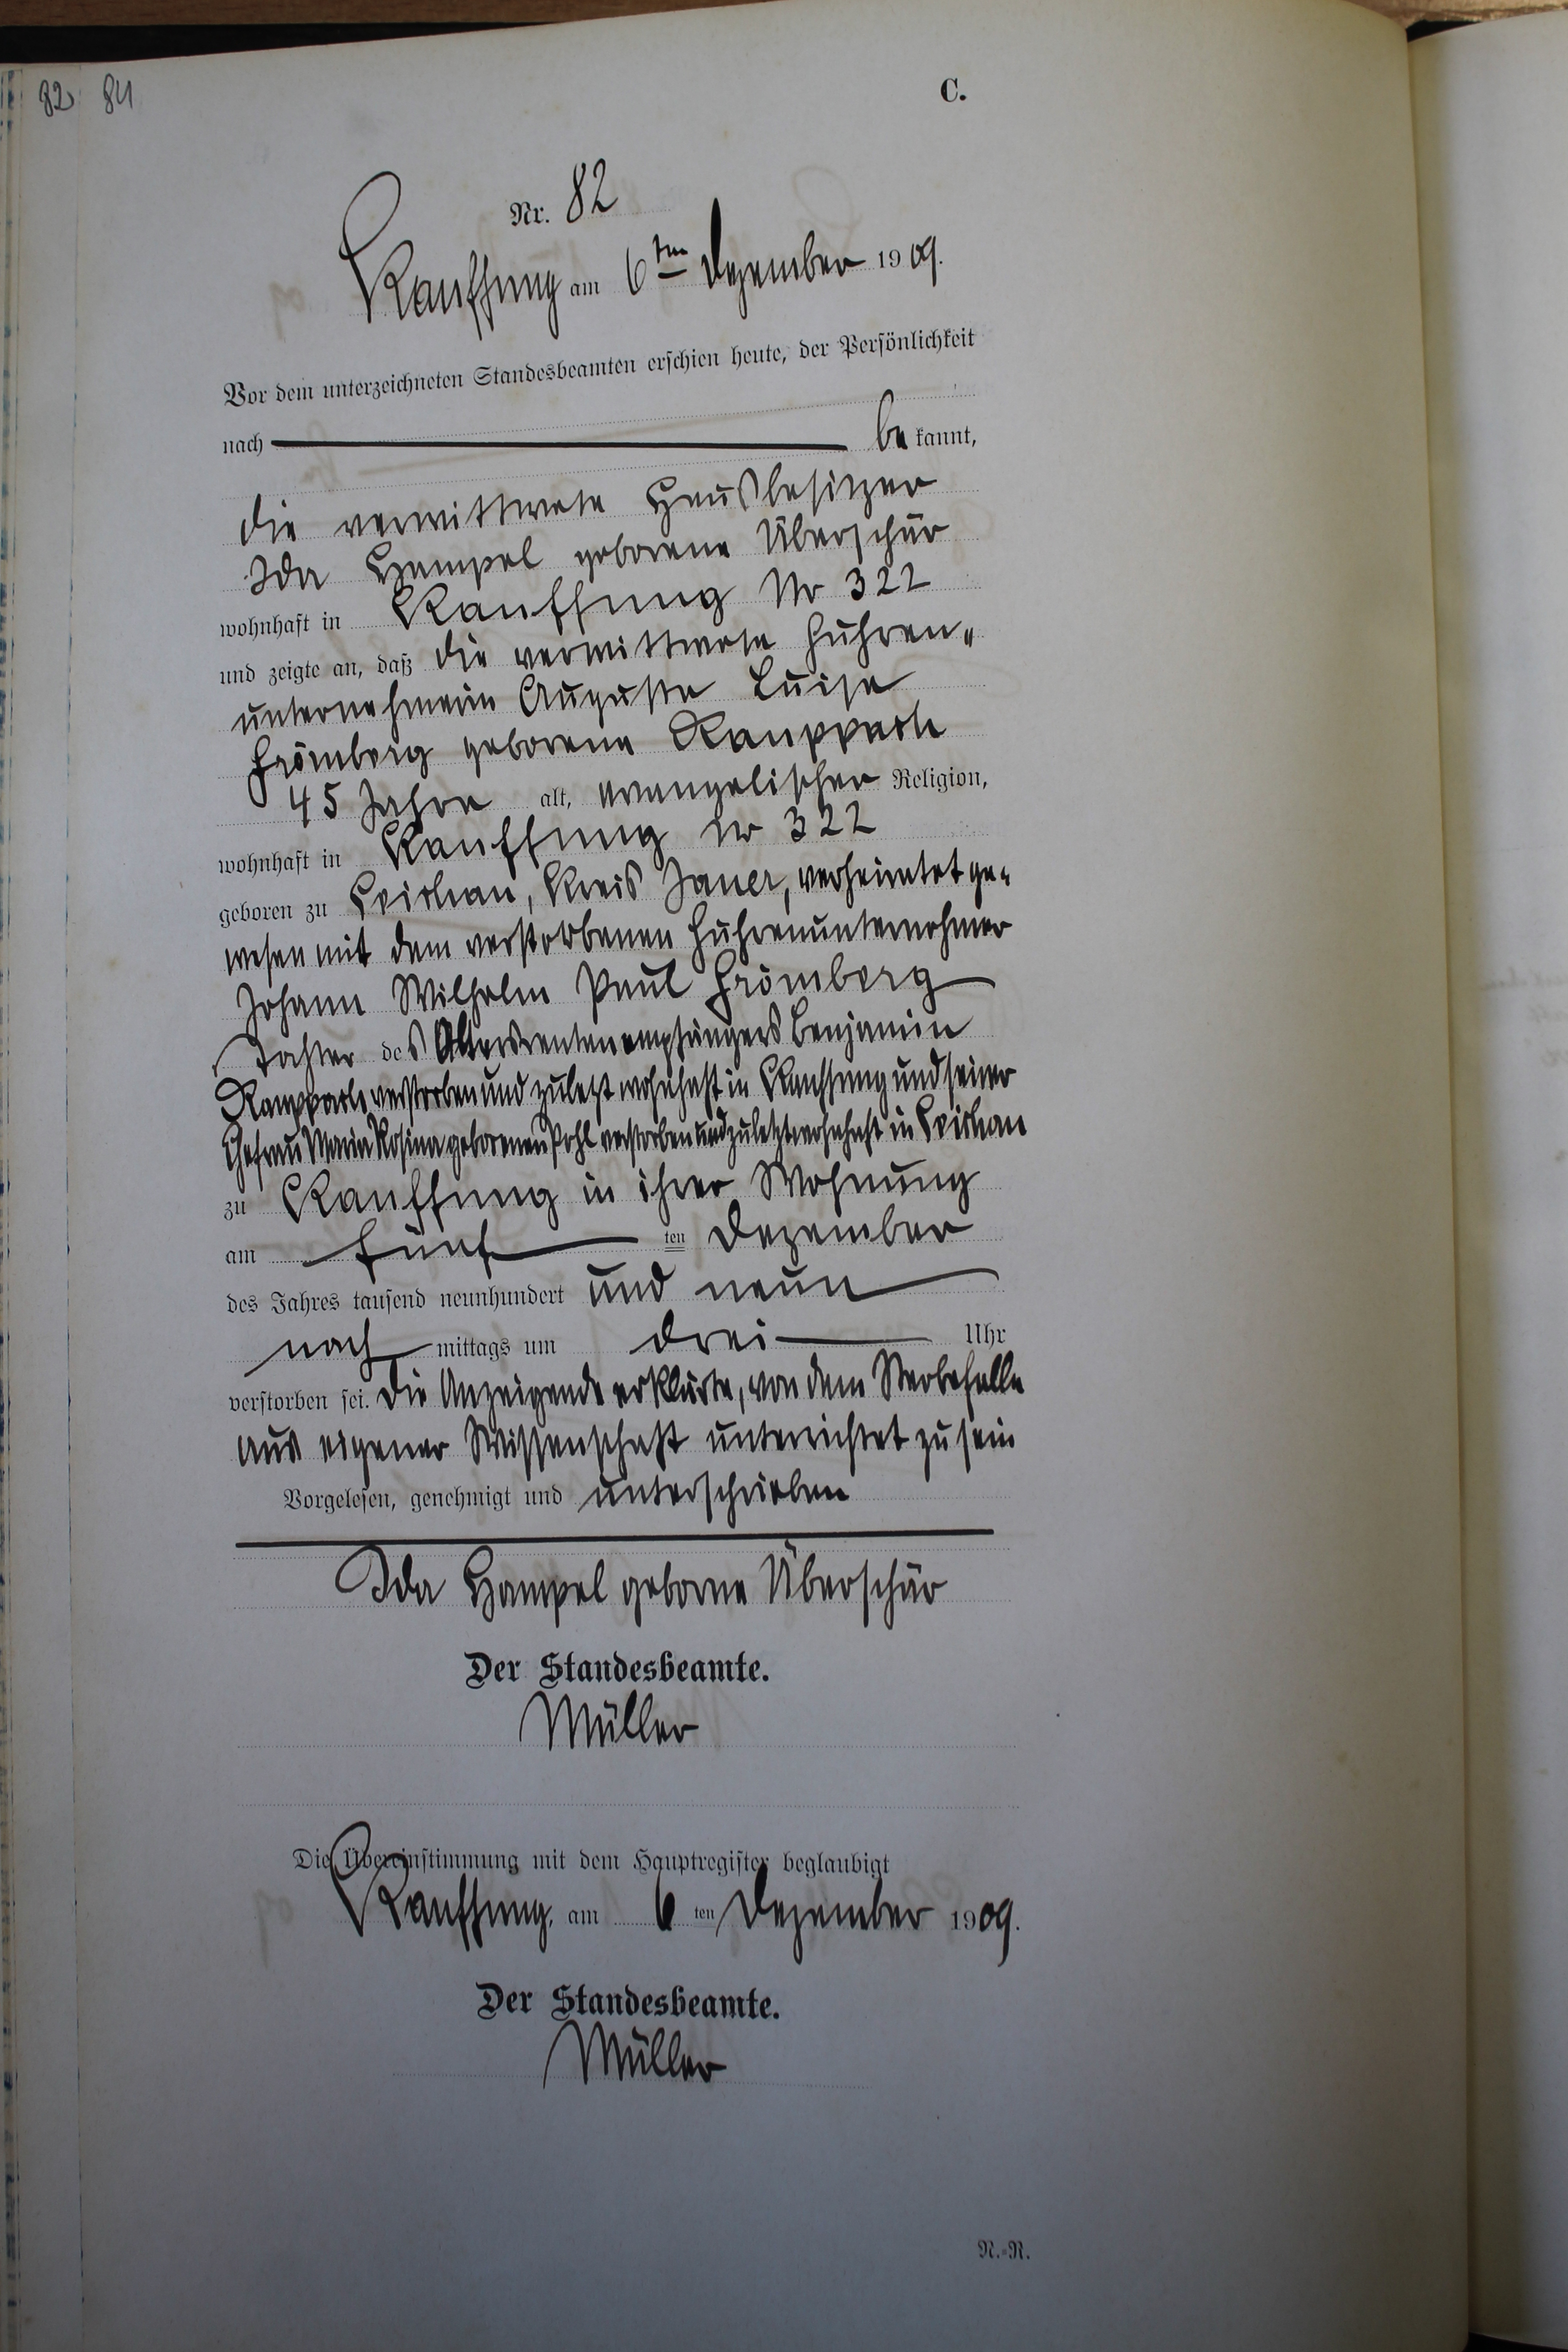 82 84
C.
Nr. 82
Kauffung am 6ten Dezember 1909.
Vor dem unterzeichneten Standesbeamten erschien heute, der Persönlichkeit
nach be kannt,
die verwittwete Hausbesitzer
Ida Hampel geborene Überschär
wohnhaft in Kauffung Nr 322
und zeigte an, daß die verwittwete Fuhren„
unternehmerin Auguste Luise
Frömberg geborene Raupbach
45 Jahre alt, evangelischer Religion,
wohnhaft in Kauffung Nr 322
geboren zu Leipe, Kreis Jauer, verheiratet ge„
wesen mit dem verstorbenen Fuhrenunternehmer
Johann Wilhelm Paul Frömberg
Tochter des Altersrentenempfängers Benjamin
verstorben und zuletzt wohnhaft in Kauffung und seiner
Ehefrau Maria Rosina geborenen Pohl verstorben und zuletzt wohnhaft in
zu Kauffung in ihrer Wohnung
am fünf ten Dezember
des Jahres tausend neunhundert und neun
nach mittags um drei Uhr
verstorben sei. Die Anzeigende erklärte, von dem Sterbefalle
aus eigener Wissenschaft unterrichtet zu sein
Vorgelesen, genehmigt und unterschrieben
Ida Hampel geborne Überschär
Der Standesbeamte.
Müller
Die Übereinstimmung mit dem Hauptregister beglaubigt
Kauffung, am 6 ten Dezember 1909.
Der Standesbeamte.
Müller
N.=N.